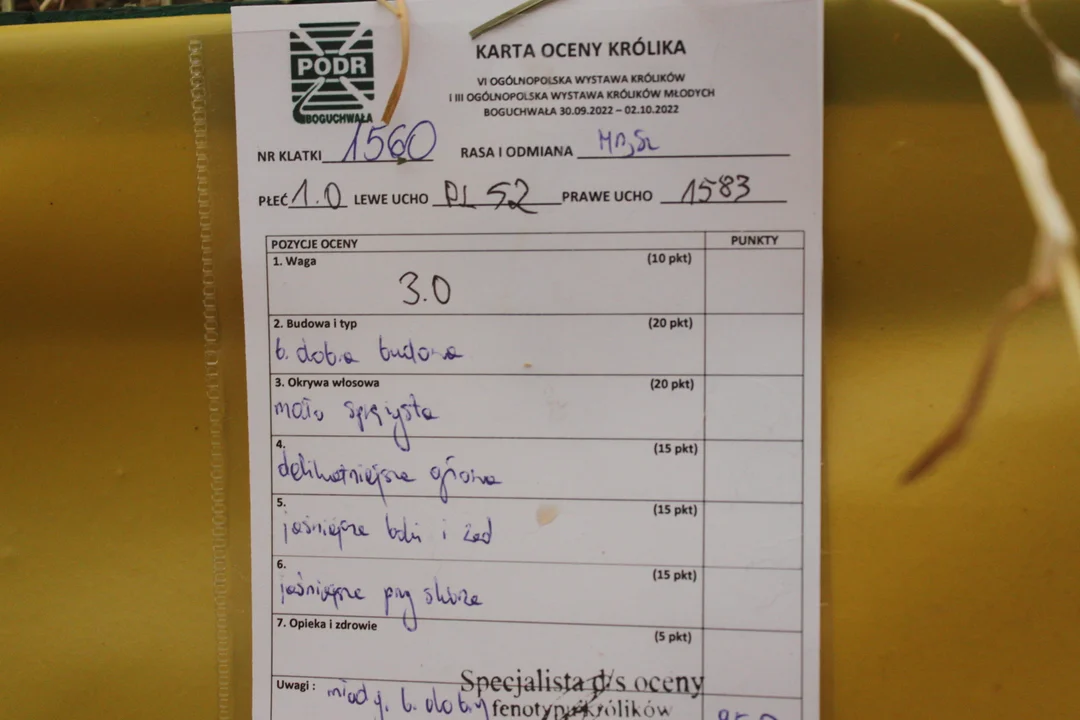 PODR
BOGUCHWAŁA
KARTA OCENY KRÓLIKA
VI OGÓLNOPOLSKA WYSTAWA KRÓLIKÓW
I III OGÓLNOPOLSKA WYSTAWA KRÓLIKÓW MŁODYCH
BOGUCHWAŁA 30.09.2022 – 02.10.2022
NR KLATKI 1560 RASA I ODMIANA
PŁEĆ 1.0 LEWE UCHO PL 52 PRAWE UCHO 1583
POZYCJE OCENY PUNKTY
1. Waga (10 pkt)
3.0
2. Budowa i typ (20 pkt)
b. dobra budowa
3. Okrywa włosowa (20 pkt)
mało sprężysta
4. (15 pkt)
delikatniejsza głowa
5. (15 pkt)
jaśniejsze boki i zad
6. (15 pkt)
jaśniejsze przy skórze
7. Opieka i zdrowie (5 pkt)
Uwagi : młody, b. dobry
Specjalista d/s oceny
fenotypu królików